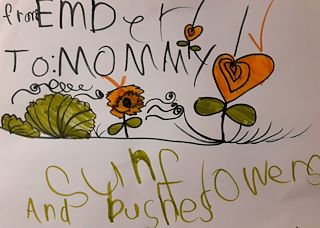 from EMBer
To: MOMMY!
sunflowers
And bushes